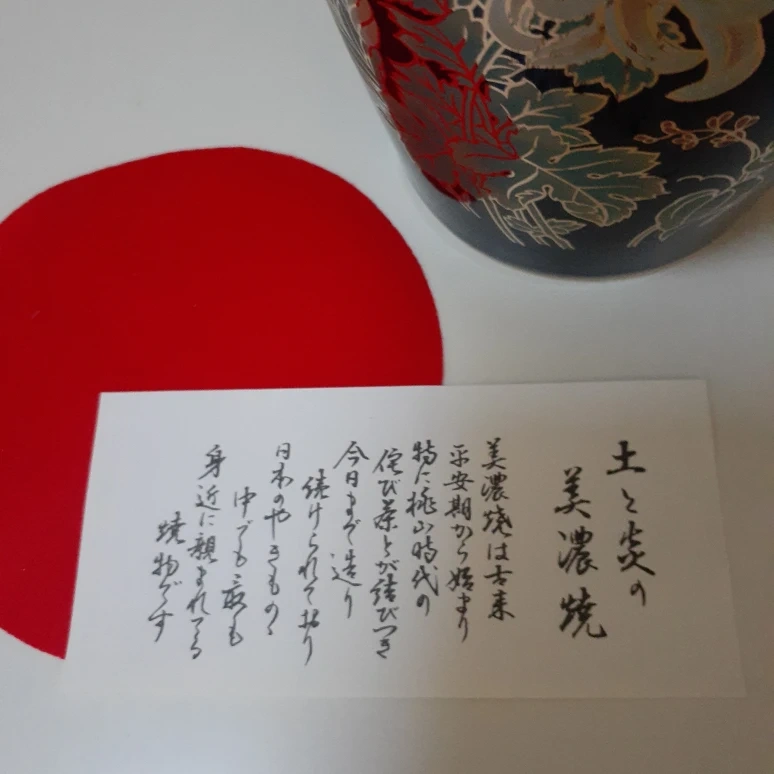 土と炎の
美濃焼
美濃焼は古来
平安期から始まり
特に桃山時代の
侘び茶とが結びつき
今日まで造り
続けられて居り
日本のやきもの丶
中でも最も
身近に親まれてる
焼物です